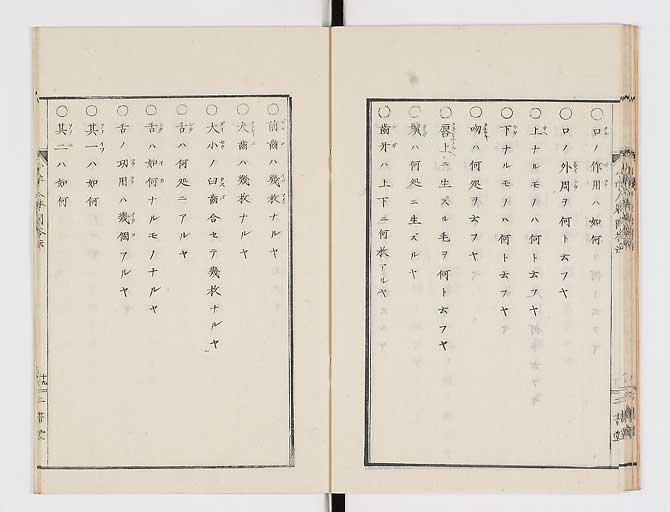 ○口ノ作用ハ如何
○口ノ外周ヲ何ト云フヤ
○上ナルモノハ何ト云フヤ
○下ナルモノハ何ト云フヤ
○吻ハ何処ヲ云フヤ
○唇上ニ生ズル毛ヲ何ト云フヤ
○鬚ハ何処ニ生ズルヤ
○歯牙ハ上下ニ何枚アルヤ
○前歯ハ幾枚ナルヤ
○犬歯ハ幾枚ナルヤ
○大小ノ臼歯合セテ幾枚ナルヤ
○舌ハ何処ニアルヤ
○舌ハ如何ナルモノナルヤ
○舌ノ功用ハ幾個アルヤ
○其一ハ如何
○其二ハ如何
十九